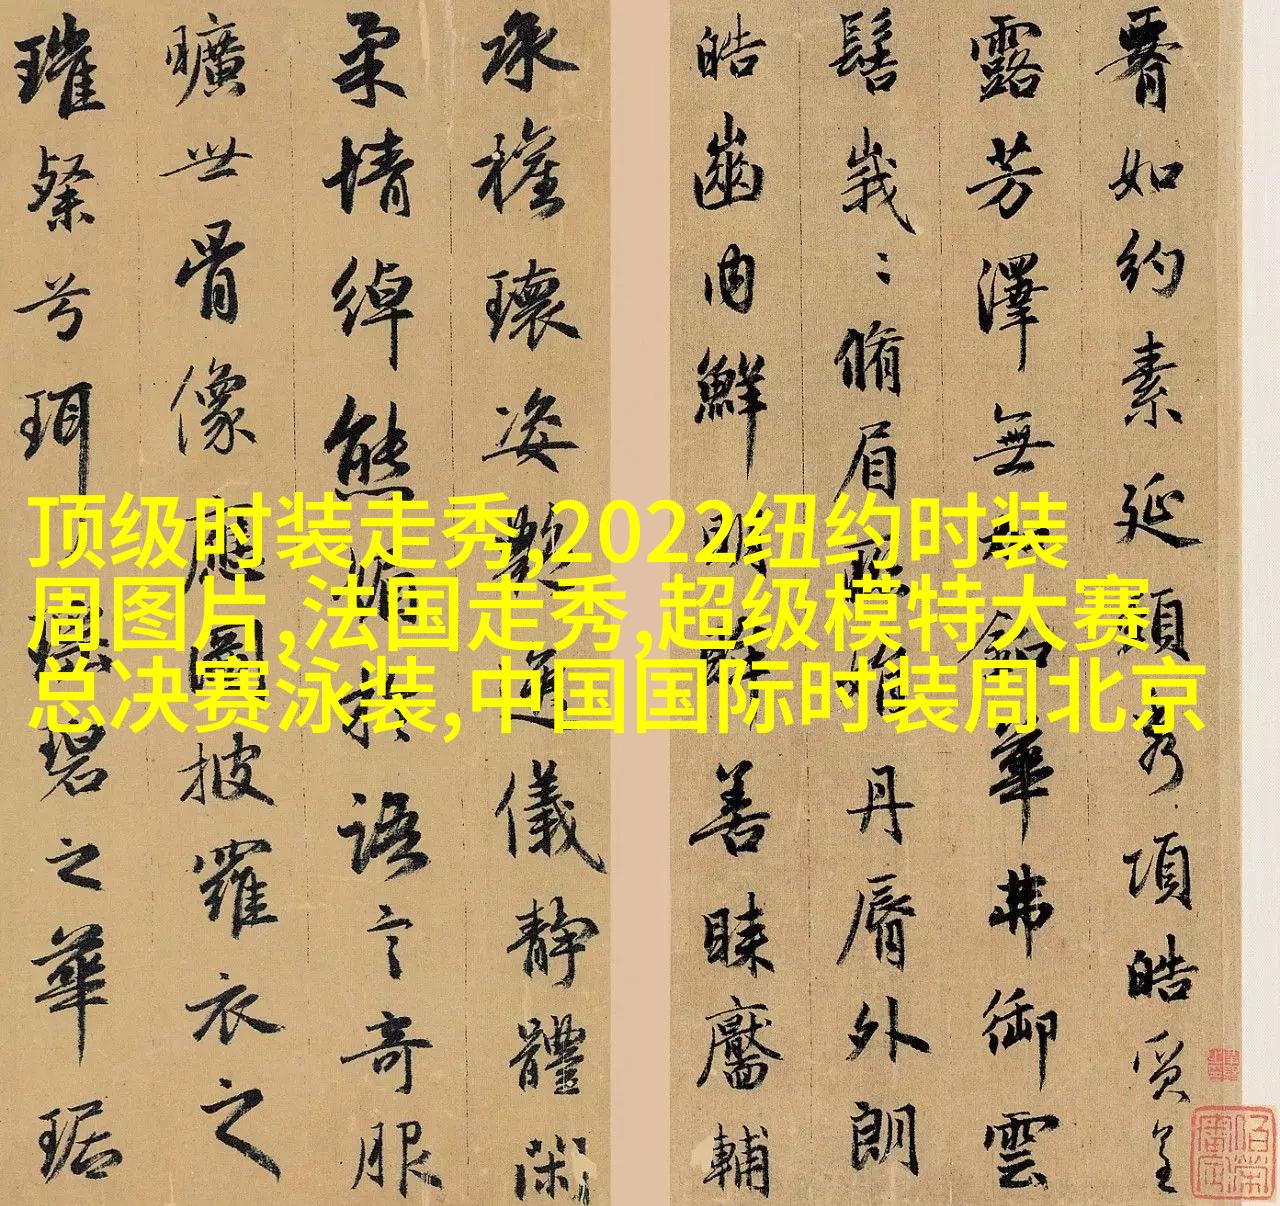 腰如約素延頸秀項皓質呈
露芳澤無加鉛華弗御雲
髻峩〻脩眉聯娟丹脣外朗
皓齒内鮮明眸善睞靨輔
承權瓌姿艷逸儀靜體閑
柔情綽態媚於語言奇服
曠世骨像應圖披羅衣之
璀粲兮珥瑤碧之華琚
顶级时装走秀,2022纽约时装
周图片,法国走秀,超级模特大赛
总决赛泳装,中国国际时装周北京